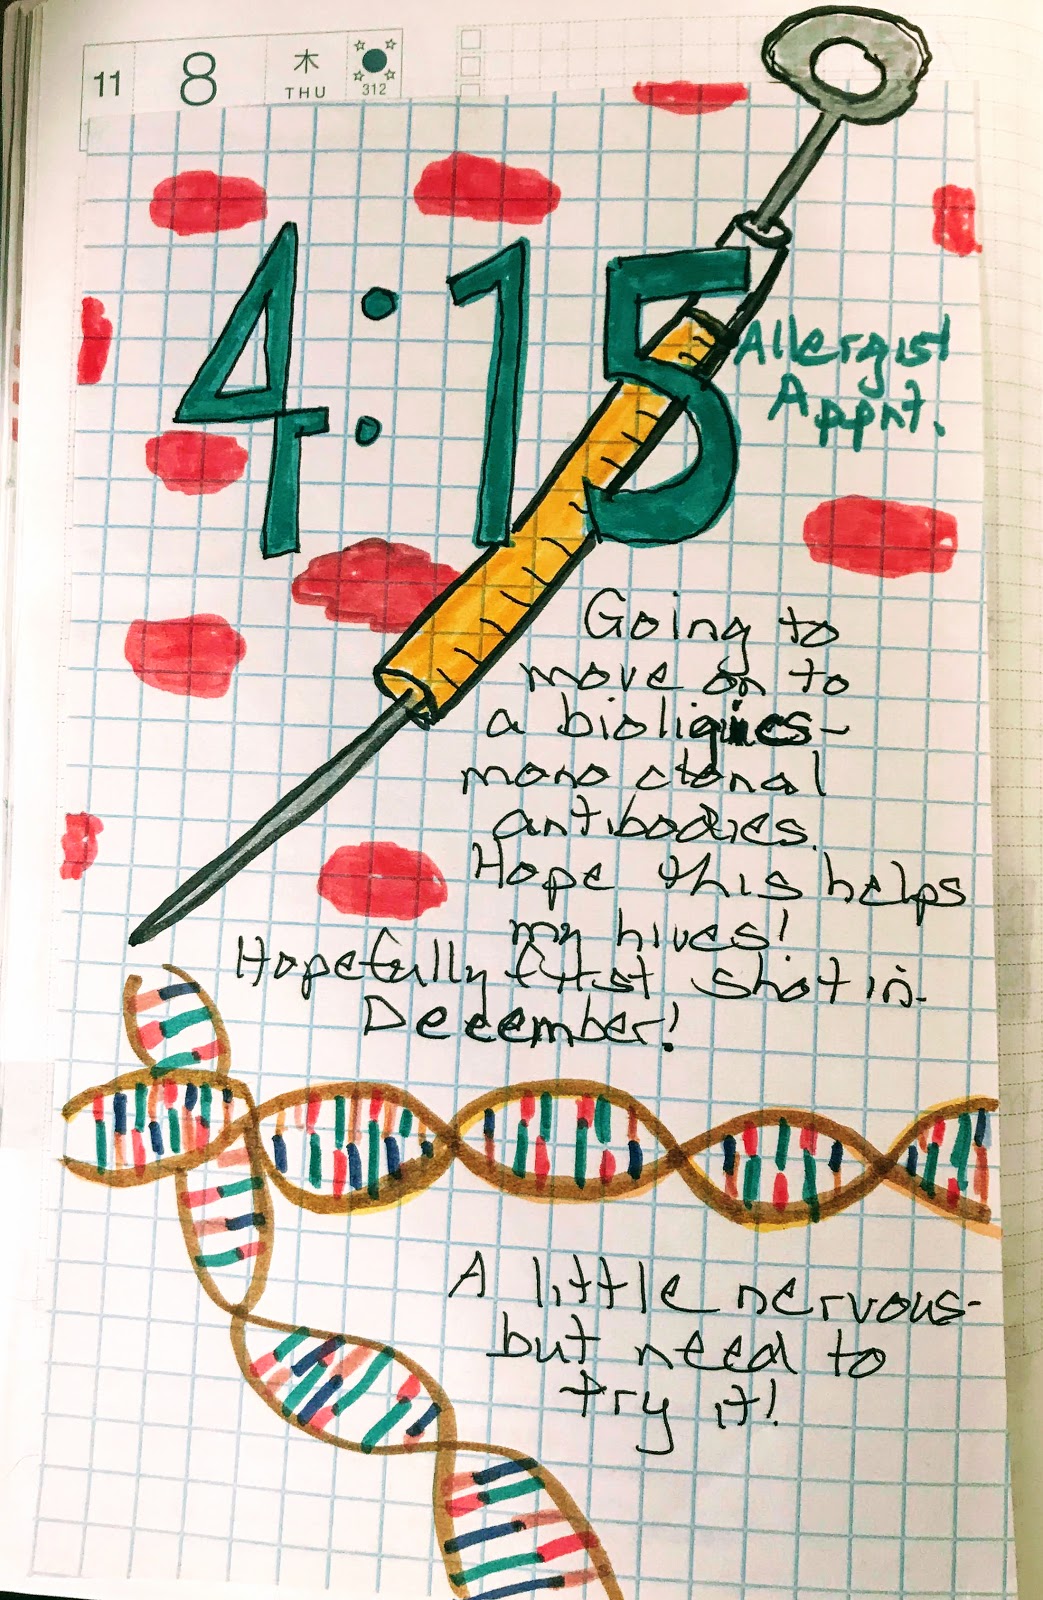 11 8 木 THU 312
4:15
Allergist
Appnt.
Going to
move on to
a bioliques-
mono clonal
antibodies.
Hope this helps
my hives!
Hopefully first shot in
December!
A little nervous-
but need to
try it!